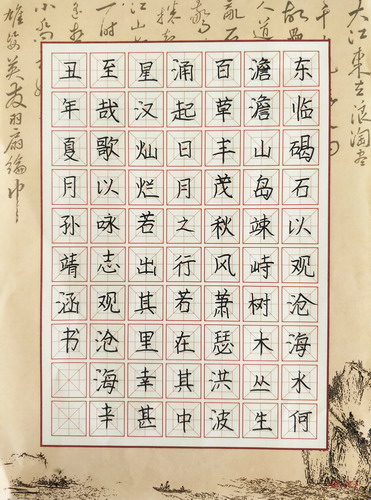 大江東去浪淘盡
人道
江山
一時
雄姿英發羽扇綸巾
东临碣石以观沧海水何
澹澹山岛竦峙树木丛生
百草丰茂秋风萧瑟洪波
涌起日月之行若在其中
星汉灿烂若出其里幸甚
至哉歌以咏志观沧海辛
丑年夏月孙靖涵书